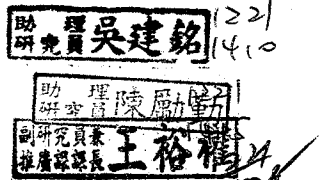 助理研究員 吳建銘 1221
1410
助理研究員 陳勵勤
副研究員兼推廣課課長 王裕權